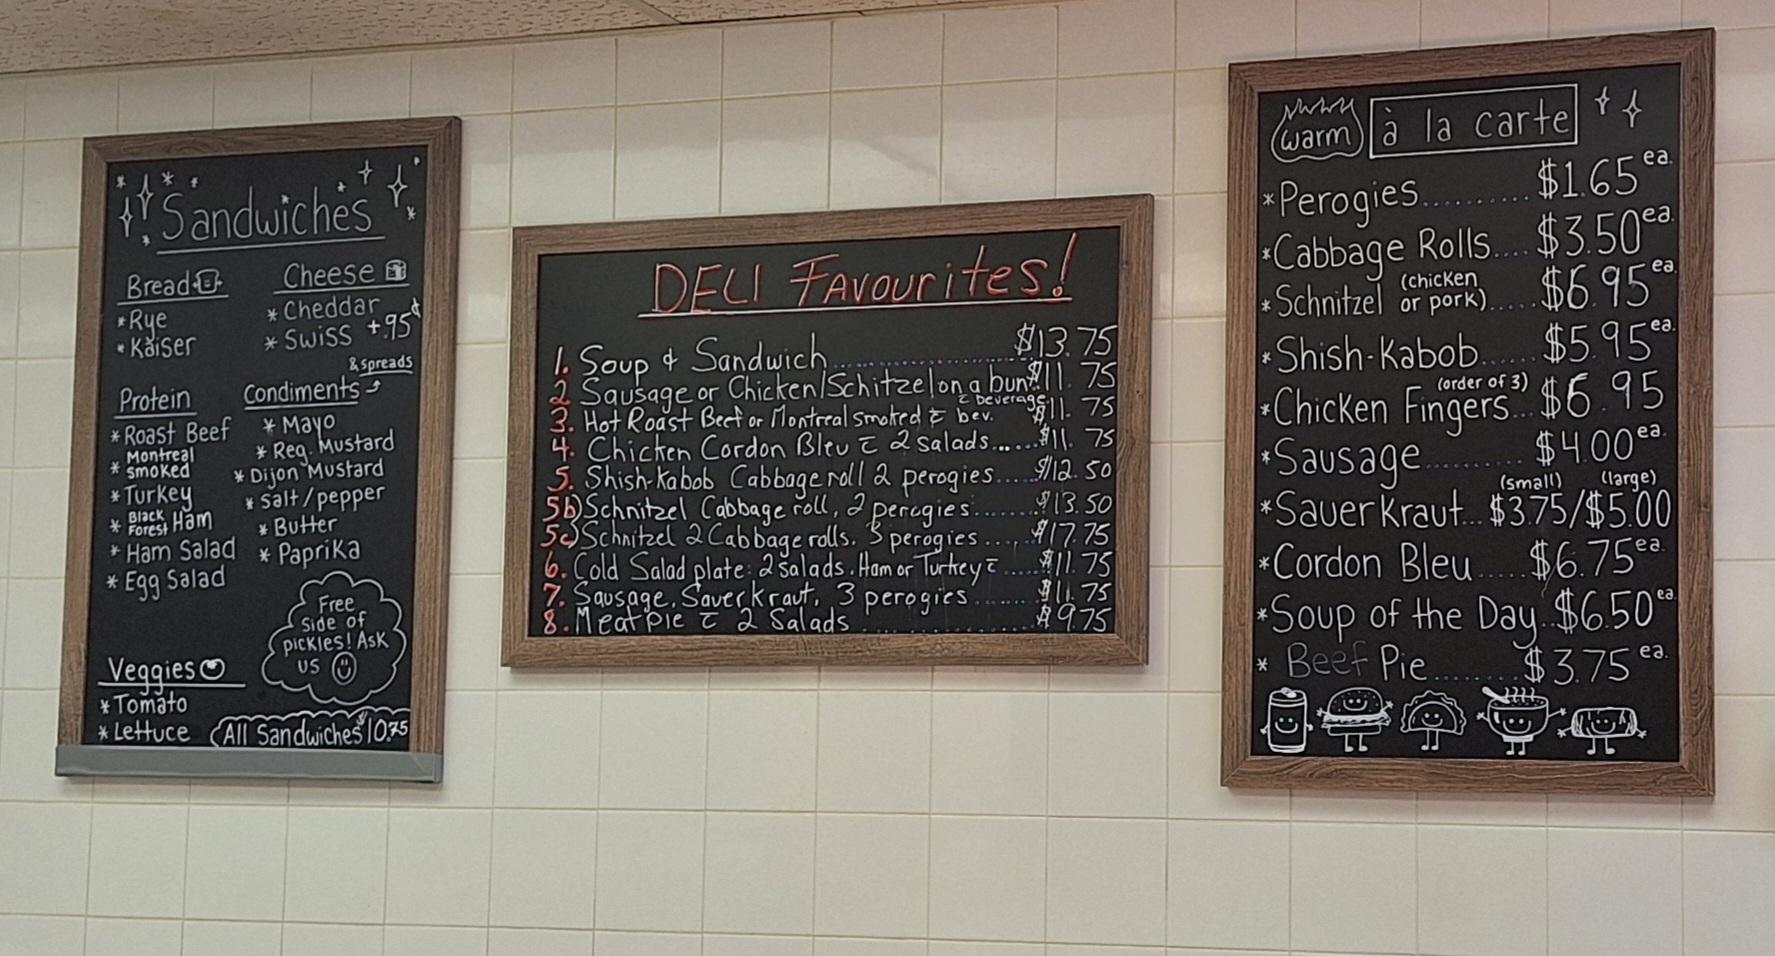 Sandwiches
Bread
*Rye
*Kaiser
Cheese
*Cheddar
*Swiss +.95¢
Protein
*Roast Beef
*Montreal smoked
*Turkey
*Black Forest Ham
*Ham Salad
*Egg Salad
& spreads
Condiments
*Mayo
*Reg. Mustard
*Dijon Mustard
*Salt/pepper
*Butter
*Paprika
Free
Side of
pickles! Ask
us
Veggies
*Tomato
*Lettuce
All Sandwiches $10.75
DELI Favourites!
1. Soup & Sandwich.......... $13.75
2 Sausage or Chicken/Schitzel on a bun $11.75
3. Hot Roast Beef or Montreal smoked c̄ bev. $11.75
c̄ beverage
4. Chicken Cordon Bleu c̄ 2 salads...... $11.75
5. Shish-Kabob Cabbage roll 2 perogies..... $12.50
5b) Schnitzel Cabbage roll, 2 perogies....... $13.50
5c) Schnitzel 2 Cabbage rolls. 3 perogies..... $17.75
6. Cold Salad plate: 2 salads. Ham or Turkey c̄ ..... $11.75
7. Sausage, Sauerkraut, 3 perogies........ $11.75
8. Meat pie c̄ 2 Salads............ $9.75
warm à la carte
*Perogies.......... $1.65 ea.
*Cabbage Rolls.... $3.50 ea.
*Schnitzel (chicken or pork)..... $6.95 ea.
*Shish-Kabob...... $5.95 ea.
*Chicken Fingers (order of 3)... $6.95
*Sausage......... $4.00 ea.
(small) (large)
*Sauerkraut... $3.75/$5.00
*Cordon Bleu..... $6.75 ea.
*Soup of the Day.. $6.50 ea.
*Beef Pie....... $3.75 ea.